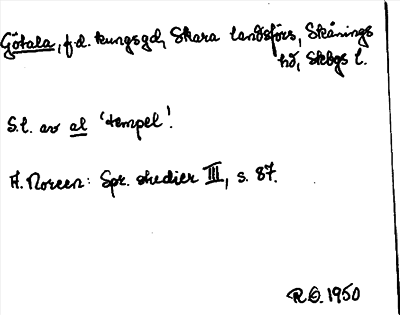 Götala, f.d. kungsgd, Skara landsförs, Skånings
hd, Skbgs l.
S.l. av al 'tempel'.
A. Noreen: Spr. studier III, s. 87.
R.O. 1950